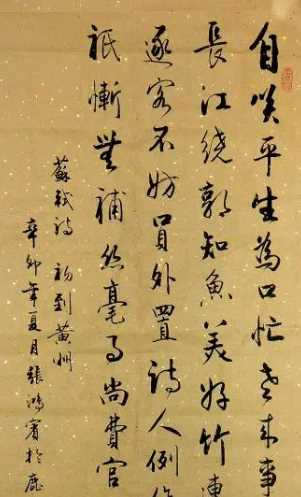 自咲平生為口忙老来事
長江绕郭知魚美好竹連
逐客不妨員外置詩人例作
祇慚無補丝毫事尚費官
蘇軾詩 初到黄州
辛卯年夏月張鴻賓於